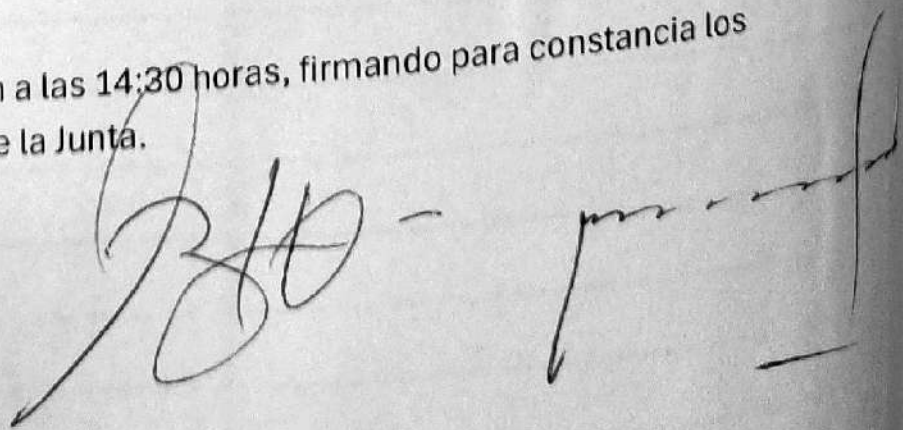 a las 14:30 horas, firmando para constancia los
la Junta.